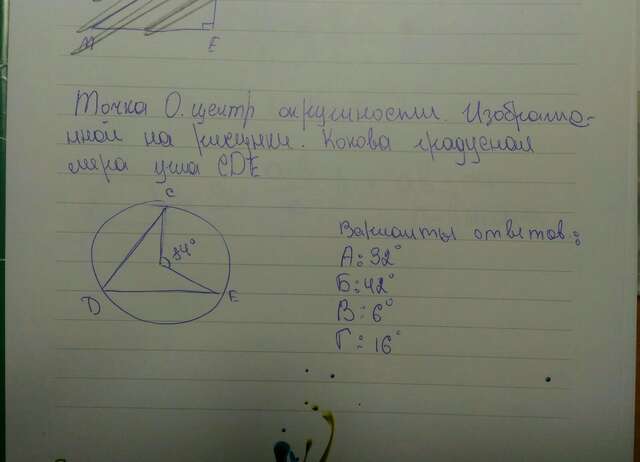 М E
Точка О. центр окружности. Изображе-
нной на рисунки. Какова градусная
мера угла CDE
C
84°
D E
Варианты ответов:
А: 32°
Б: 42°
В: 6°
Г: 16°